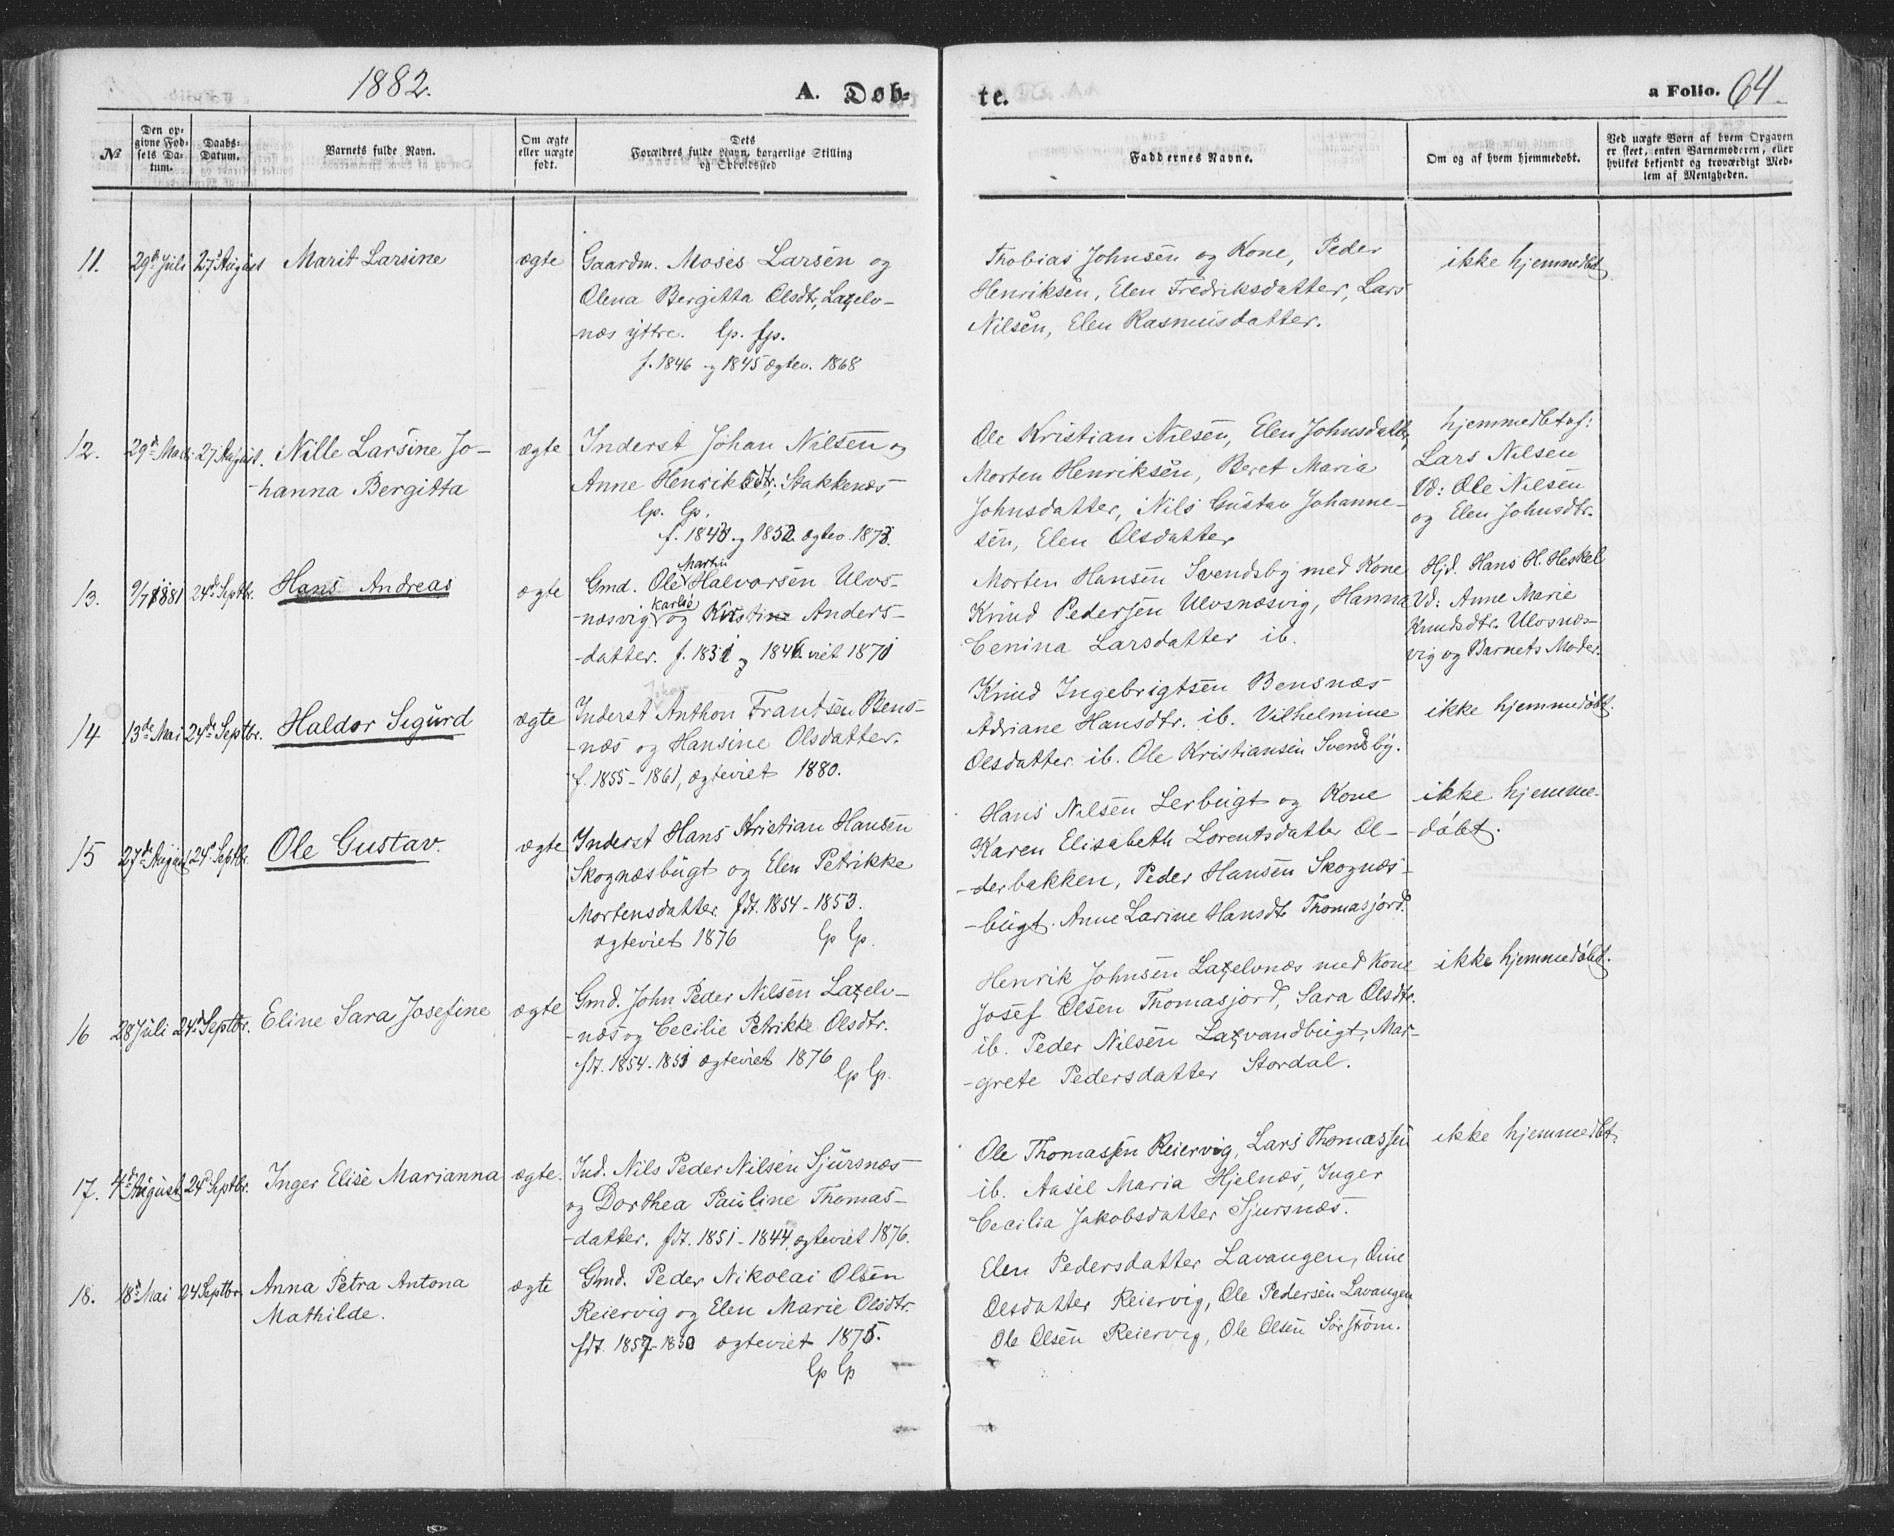 1882.
A. Døb-
te.
a Folio. 64.
№
Den op-
givne Fød-
sels Da-
tum.
Daabs-
Datum.
Barnets fulde Navn.
Om ægte
eller uægte
født.
Dets
Forældres fulde Navn, borgerlige Stilling
og Opholdssted
Faddernes Navne.
Om og af hvem hjemmedøbt.
Ved uægte Børn af hvem Opgaven
er skeet, enten Barnemoderen, eller
hvilket bekjendt og troværdigt Med-
lem af Menigheden.
11. 29de Juli 27de August Marit Larsine ægte
Gaardm. Moses Larsen og
Olena Bergitta Olsdtr, Laxelv-
næs yttre. lp. fp.
f. 1846 og 1845 ægtev. 1868
Thobias Johnsen og Kone, Peder
Henriksen, Elen Fredriksdatter, Lars
Nilsen, Elen Rasmusdatter.
ikke hjemmedbt
12. 29de Mai 27 August. Nille Larsine Jo-
-hanna Bergitta
ægte
Inderst Johan Nilsen og
Anne Henriksdtr, Stakkenæs
lp. lp.
f. 1843 og 1852. ægtev. 1873.
Ole Kristian Nilsen, Elen Johnsdatter,
Morten Henriksen, Beret Maria
Johnsdatter, Nils Gustav Johanne-
sen, Elen Olsdatter
hjemmedbt af:
Lars Nilsen
Vd: Ole Nilsen
og Elen Johnsdtr.
13. 9/7 1881 24de Septbr. Hans Andreas ægte
Gmd. Ole Martin Halvorsen Ulvs-
-næsvig og Karlie Kirstine Anders-
-datter. f. 1831 og 1846. viet 1871
Morten Hansen Svendsby med Kone
Knud Pedersen Ulvsnæsvig, Hanna
Cenina Larsdatter ib.
Hjd. Hans H. Heskel
Vd: Anne Marie
Knudsdtr. Ulvsnæs-
vig og Barnets Moder.
14 13de Mai 24de Septbr. Haldor Sigurd ægte
Johan
Inderst Anthon Frantsen Bens-
-næs og Hansine Olsdatter.
f. 1855 - 1861, ægteviet 1880.
Knud Ingebrigtsen Bensnæs
Adriane Hansdtr. ib. Vilhelmine
Olsdatter ib. Ole Kristiansen Svendsby.
ikke hjemmedøbt.
15 27de August 24de Septbr. Ole Gustav. ægte
Inderst Hans Kristian Hansen
Skognæsbugt og Elen Petrikke
Mortensdatter. fdt. 1854 - 1853.
ægteviet 1876 lp lp.
Hans Nilsen Lerbugt og Kone
Karen Elisabeth Lorentsdatter Ol-
-derbakken, Peder Hansen Skognæs-
-bugt. Anne Larine Hansdtr Thomasjord.
ikke hjemme-
-døbt.
16 28 Juli 24de Septbr. Eline Sara Josefine ægte
Gmd. John Peder Nilsen Laxelv-
-næs og Cecilie Petrikke Olsdtr.
fdt. 1854 - 1851 ægteviet 1876
lp lp.
Henrik Johnsen Laxelvnæs med Kone
Josef Olsen Thomasjord, Sara Olsdtr.
ib. Peder Nilsen Laxvandbugt, Mar-
-grete Pedersdatter Stordal.
ikke hjemmedøbt.
17. 4de August 24de Septbr. Inger Elise Marianna ægte.
Ind. Nils Peder Nilsen Sjursnæs
og Dorthea Pauline Thomas-
-datter. fdt. 1851 - 1844. ægteviet 1876.
Ole Thomassen Reiervig, Lars Thomassen
ib. Aasel Maria Hjelnæs, Inger
Cecilia Jakobsdatter Sjursnæs.
ikke hjemmedbt.
18. 18de Mai 24 Septbr. Anna Petra Antona
Mathilde.
ægte
Gmd. Peder Nikolai Olsen
Reiervig og Elen Marie Olsdtr.
fdt. 1857 - 1850 ægteviet 1875.
lp lp
Elen Pedersdatter Lavangen, Oline
Olsdatter Reiervig, Ole Pedersen Lavangen
Ole Olsen Reiervig, Ole Olsen Sørstrøm.